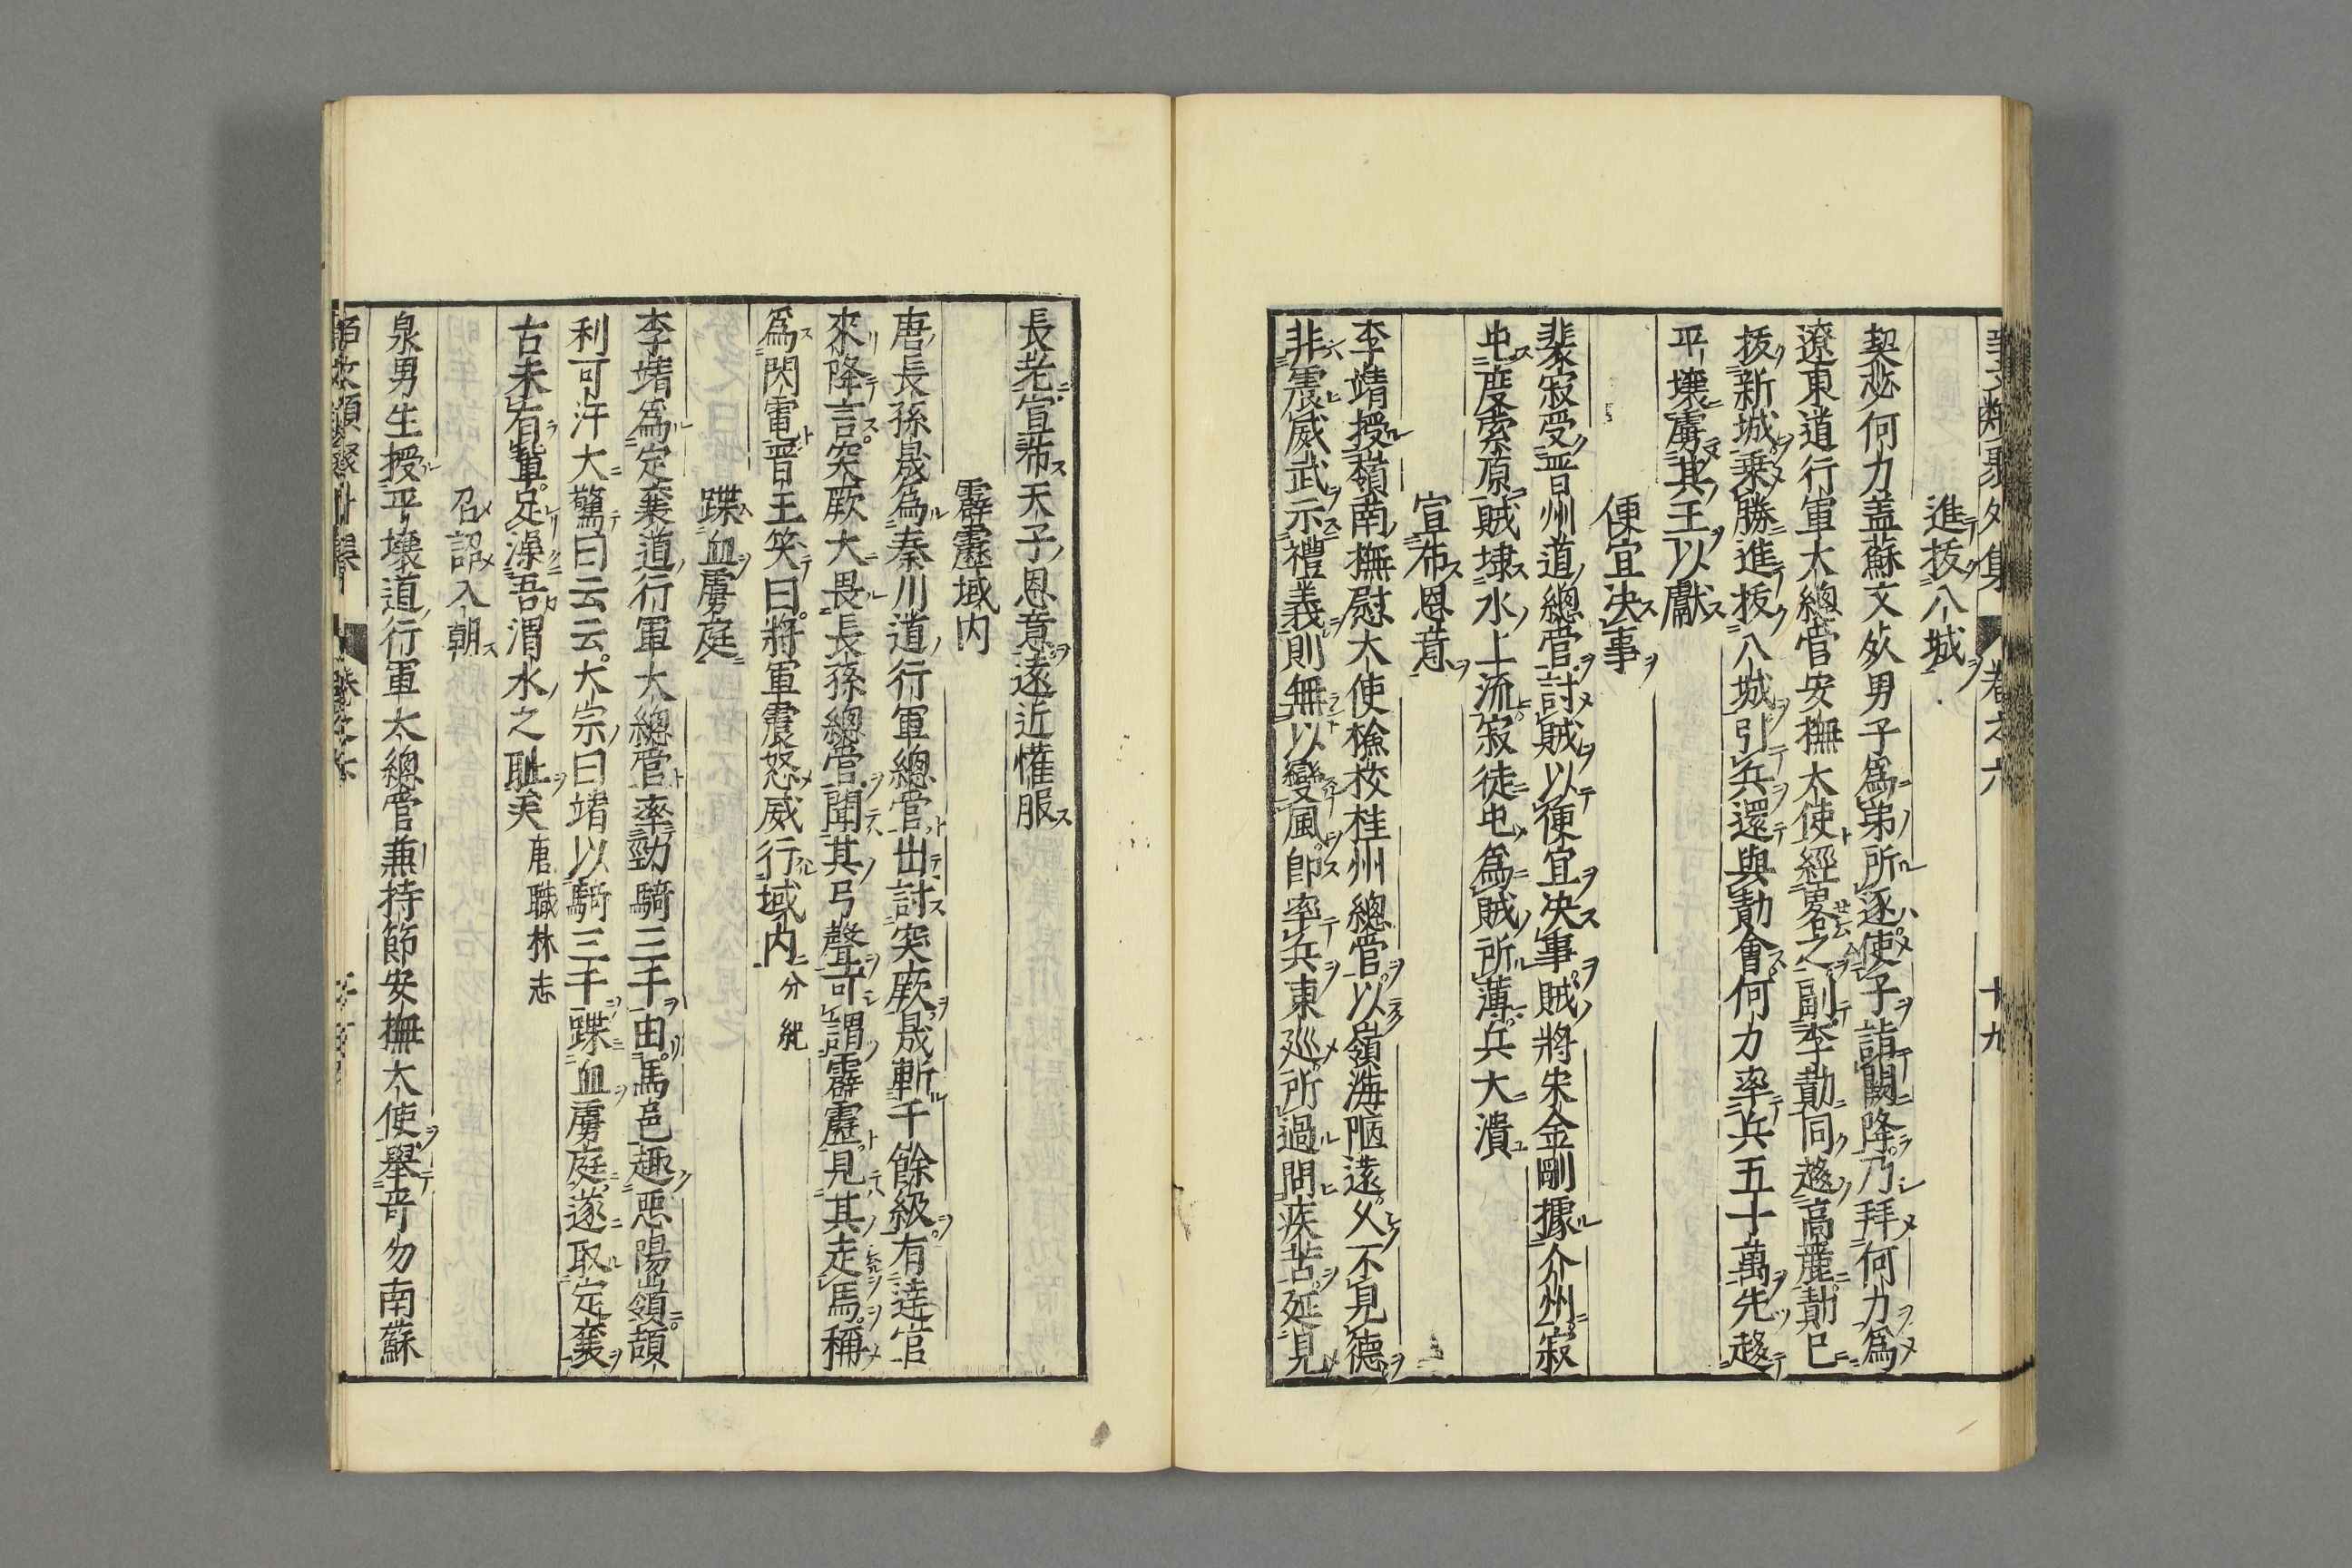 事文類聚外集 卷之六 十九
進拔八城
契苾何力盖蘇文死男子為弟所逐使子詣闕降乃拜何力為
遼東道行軍大總管安撫大使經畧之副李勣同趍高麗勣已
拔新城乗勝進拔八城引兵還與勣會何力率兵五十萬先趍
平壤虜其王以獻
便宜决事
裴寂受晋州道總管討賊以便宜决事賊將宋金剛據介州寂
屯度索原賊埭水上流寂徒屯為賊所薄兵大潰
宣布恩意
李靖授嶺南撫慰大使檢校桂州總管以嶺海陋遠久不見德
非震威武示禮義則無以變風即率兵東廵所過問疾苦延見
長老宣布天子恩意遠近懽服
霹靂域内
唐長孫晟為秦川道行軍總管出討突厥晟斬千餘級有達官
來降言突厥大畏長孫總管聞其弓聲謂霹靂見其走馬稱
為閃電晋王笑曰將軍震怒威行域内 分紀
蹀血虜庭
李靖為定襄道行軍大總管率勁騎三千由馬邑趨惡陽嶺頡
利可汗大驚曰云云太宗曰靖以騎三千蹀血虜庭遂取定襄
古未有軰足澡吾渭水之耻矣 唐職林志
召詔入朝
泉男生授平壤道行軍大總管兼持節安撫大使舉哥勿南蘇